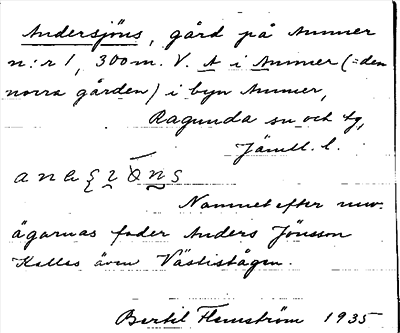 Andersjöns, gård på Ammer
n:r 1, 300 m. V. A i Ammer (=den
norra gården) i byn Ammer,
Ragunda sn och tg,
Jämtl. l.
Namnet efter nuv.
ägarnas fader Anders Jönsson
Kalles även Västistågen.
Bertil Flemström 1935